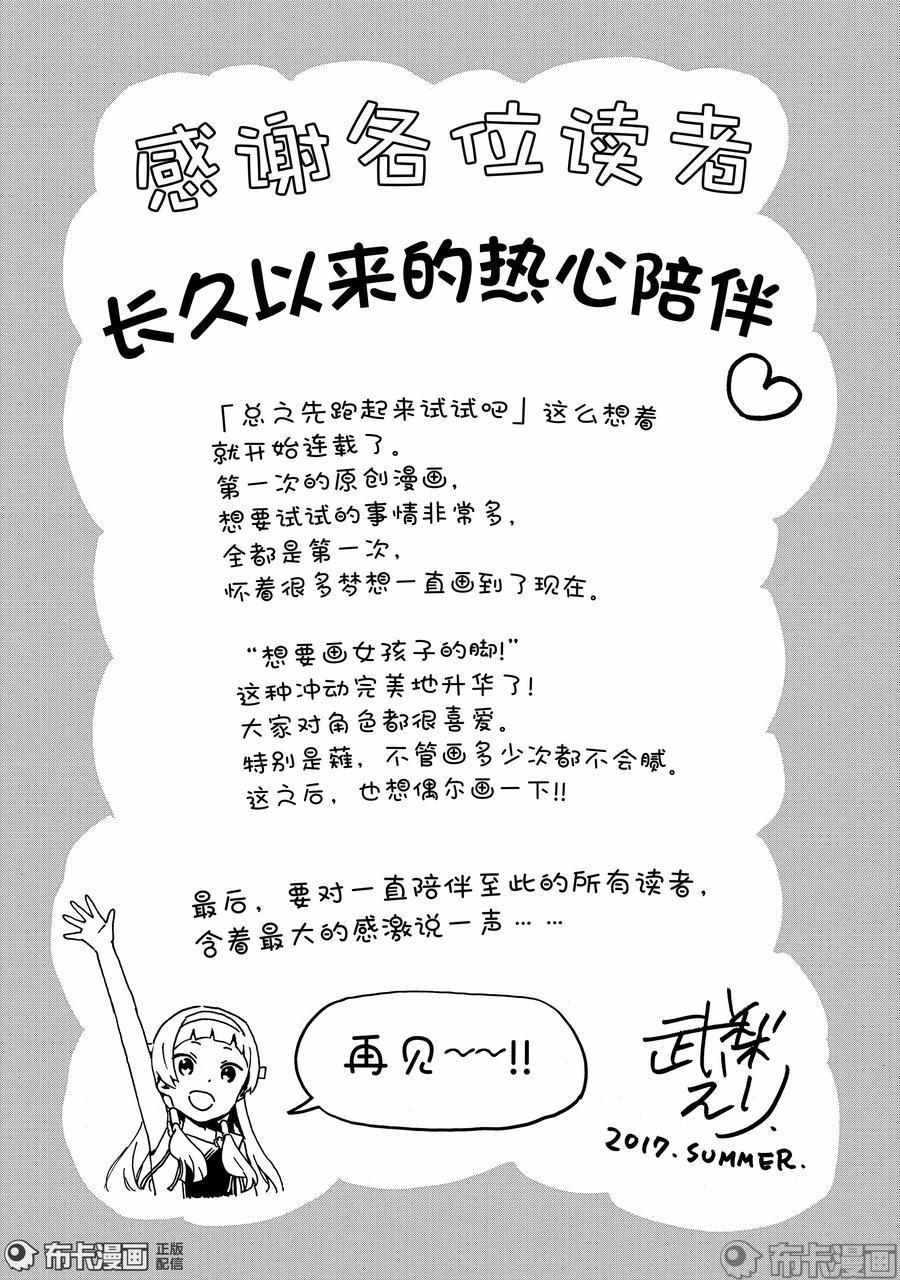 感谢各位读者
长久以来的热心陪伴
「总之先跑起来试试吧」这么想着
就开始连载了。
第一次的原创漫画，
想要试试的事情非常多，
全都是第一次，
怀着很多梦想一直画到了现在。
“想要画女孩子的脚!”
这种冲动完美地升华了!
大家对角色都很喜爱。
特别是薙，不管画多少次都不会腻。
这之后，也想偶尔画一下!!
最后，要对一直陪伴至此的所有读者，
含着最大的感激说一声……
再见~~!!
武梨
えり.
2017. SUMMER.
布卡漫画 正版
配信
布卡漫画